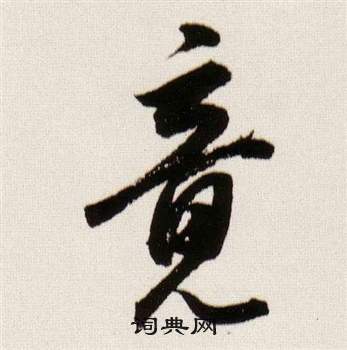 竟
词典网